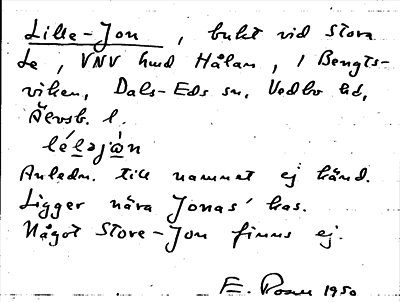 Lille-Jon, bukt vid Stora
Le, VNV hmd Hålan, i Bengts-
viken, Dals-Eds sn, Vedbo hd,
Älvsb. l.
lé̱le̱jà̱n
Anledn. till namnet ej känd.
Ligger nära Jonas' kas.
Något Store-Jon finns ej.
E. 1950